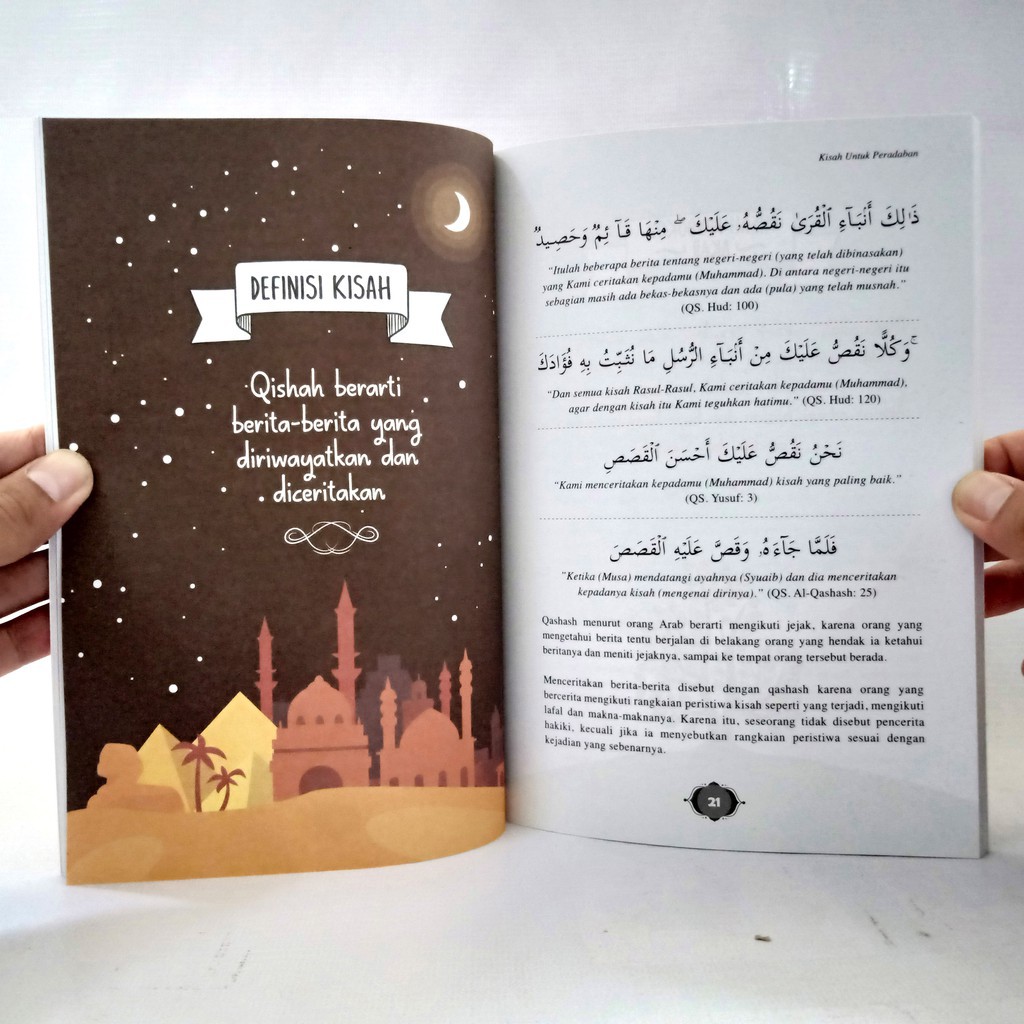 DEFINISI KISAH
Qishah berarti
berita-berita yang
diriwayatkan dan
diceritakan
Kisah Untuk Peradaban
ذَٰلِكَ أَنْبَآءِ ٱلْقُرَىٰ نَقُصُّهُۥ عَلَيْكَ ۖ مِنْهَا قَآئِمٌ وَحَصِيدٌ
"Itulah beberapa berita tentang negeri-negeri (yang telah dibinasakan)
yang Kami ceritakan kepadamu (Muhammad). Di antara negeri-negeri itu
sebagian masih ada bekas-bekasnya dan ada (pula) yang telah musnah."
(QS. Hud: 100)
وَكُلًّا نَقُصُّ عَلَيْكَ مِنْ أَنْبَآءِ الرُّسُلِ مَا نُثَبِّتُ بِهِ فُؤَادَكَ ۚ
"Dan semua kisah Rasul-Rasul, Kami ceritakan kepadamu (Muhammad),
agar dengan kisah itu Kami teguhkan hatimu." (QS. Hud: 120)
نَحْنُ نَقُصُّ عَلَيْكَ أَحْسَنَ ٱلْقَصَصِ
"Kami menceritakan kepadamu (Muhammad) kisah yang paling baik."
(QS. Yusuf: 3)
فَلَمَّا جَآءَهُۥ وَقَصَّ عَلَيْهِ ٱلْقَصَصَ
"Ketika (Musa) mendatangi ayahnya (Syuaib) dan dia menceritakan
kepadanya kisah (mengenai dirinya)." (QS. Al-Qashash: 25)
Qashash menurut orang Arab berarti mengikuti jejak, karena orang yang
mengetahui berita tentu berjalan di belakang orang yang hendak ia ketahui
beritanya dan meniti jejaknya, sampai ke tempat orang tersebut berada.
Menceritakan berita-berita disebut dengan qashash karena orang yang
bercerita mengikuti rangkaian peristiwa kisah seperti yang terjadi, mengikuti
lafal dan makna-maknanya. Karena itu, seseorang tidak disebut pencerita
hakiki, kecuali jika ia menyebutkan rangkaian peristiwa sesuai dengan
kejadian yang sebenarnya.
21